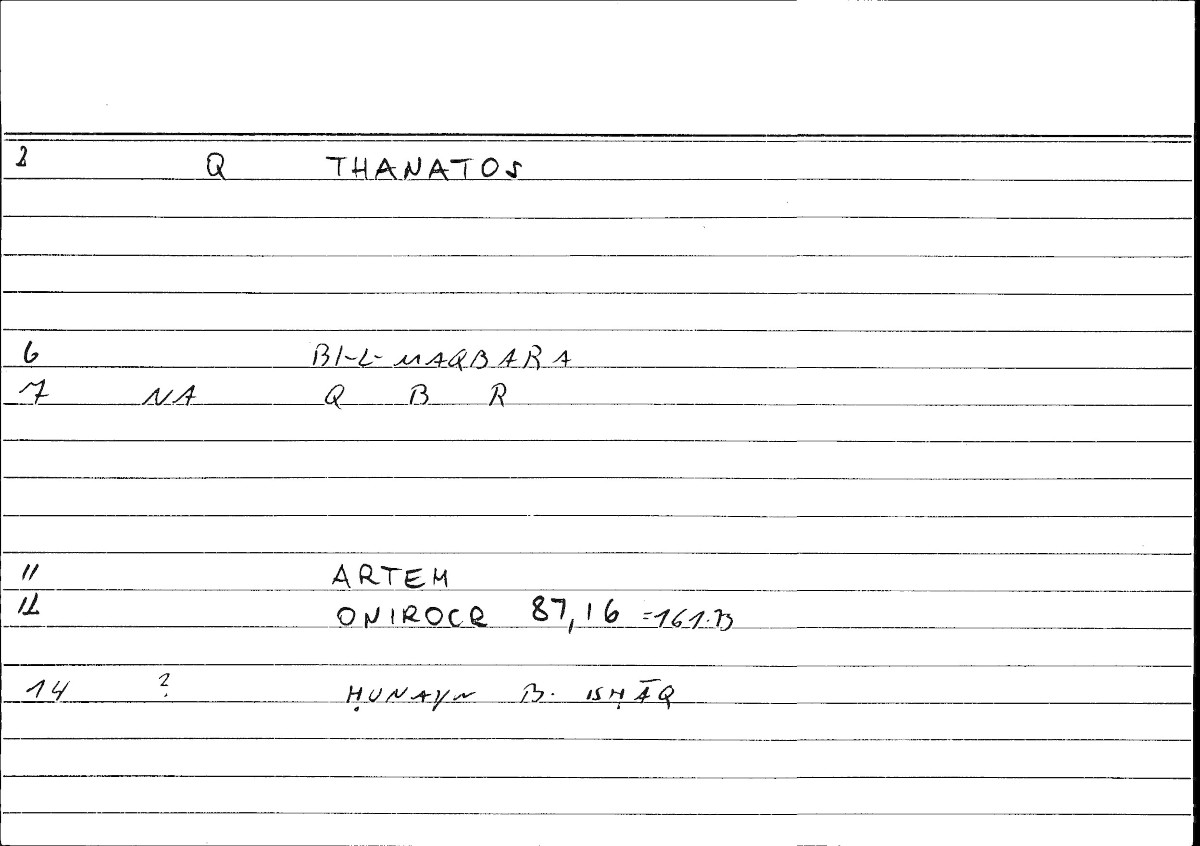 2 Q THANATOS
6 BI-L-MAQBARA
7 NA Q B R
11 ARTEM
12 ONIROCR 87,16 =161.13
14 ? ḤUNAYN B. ISḤĀQ